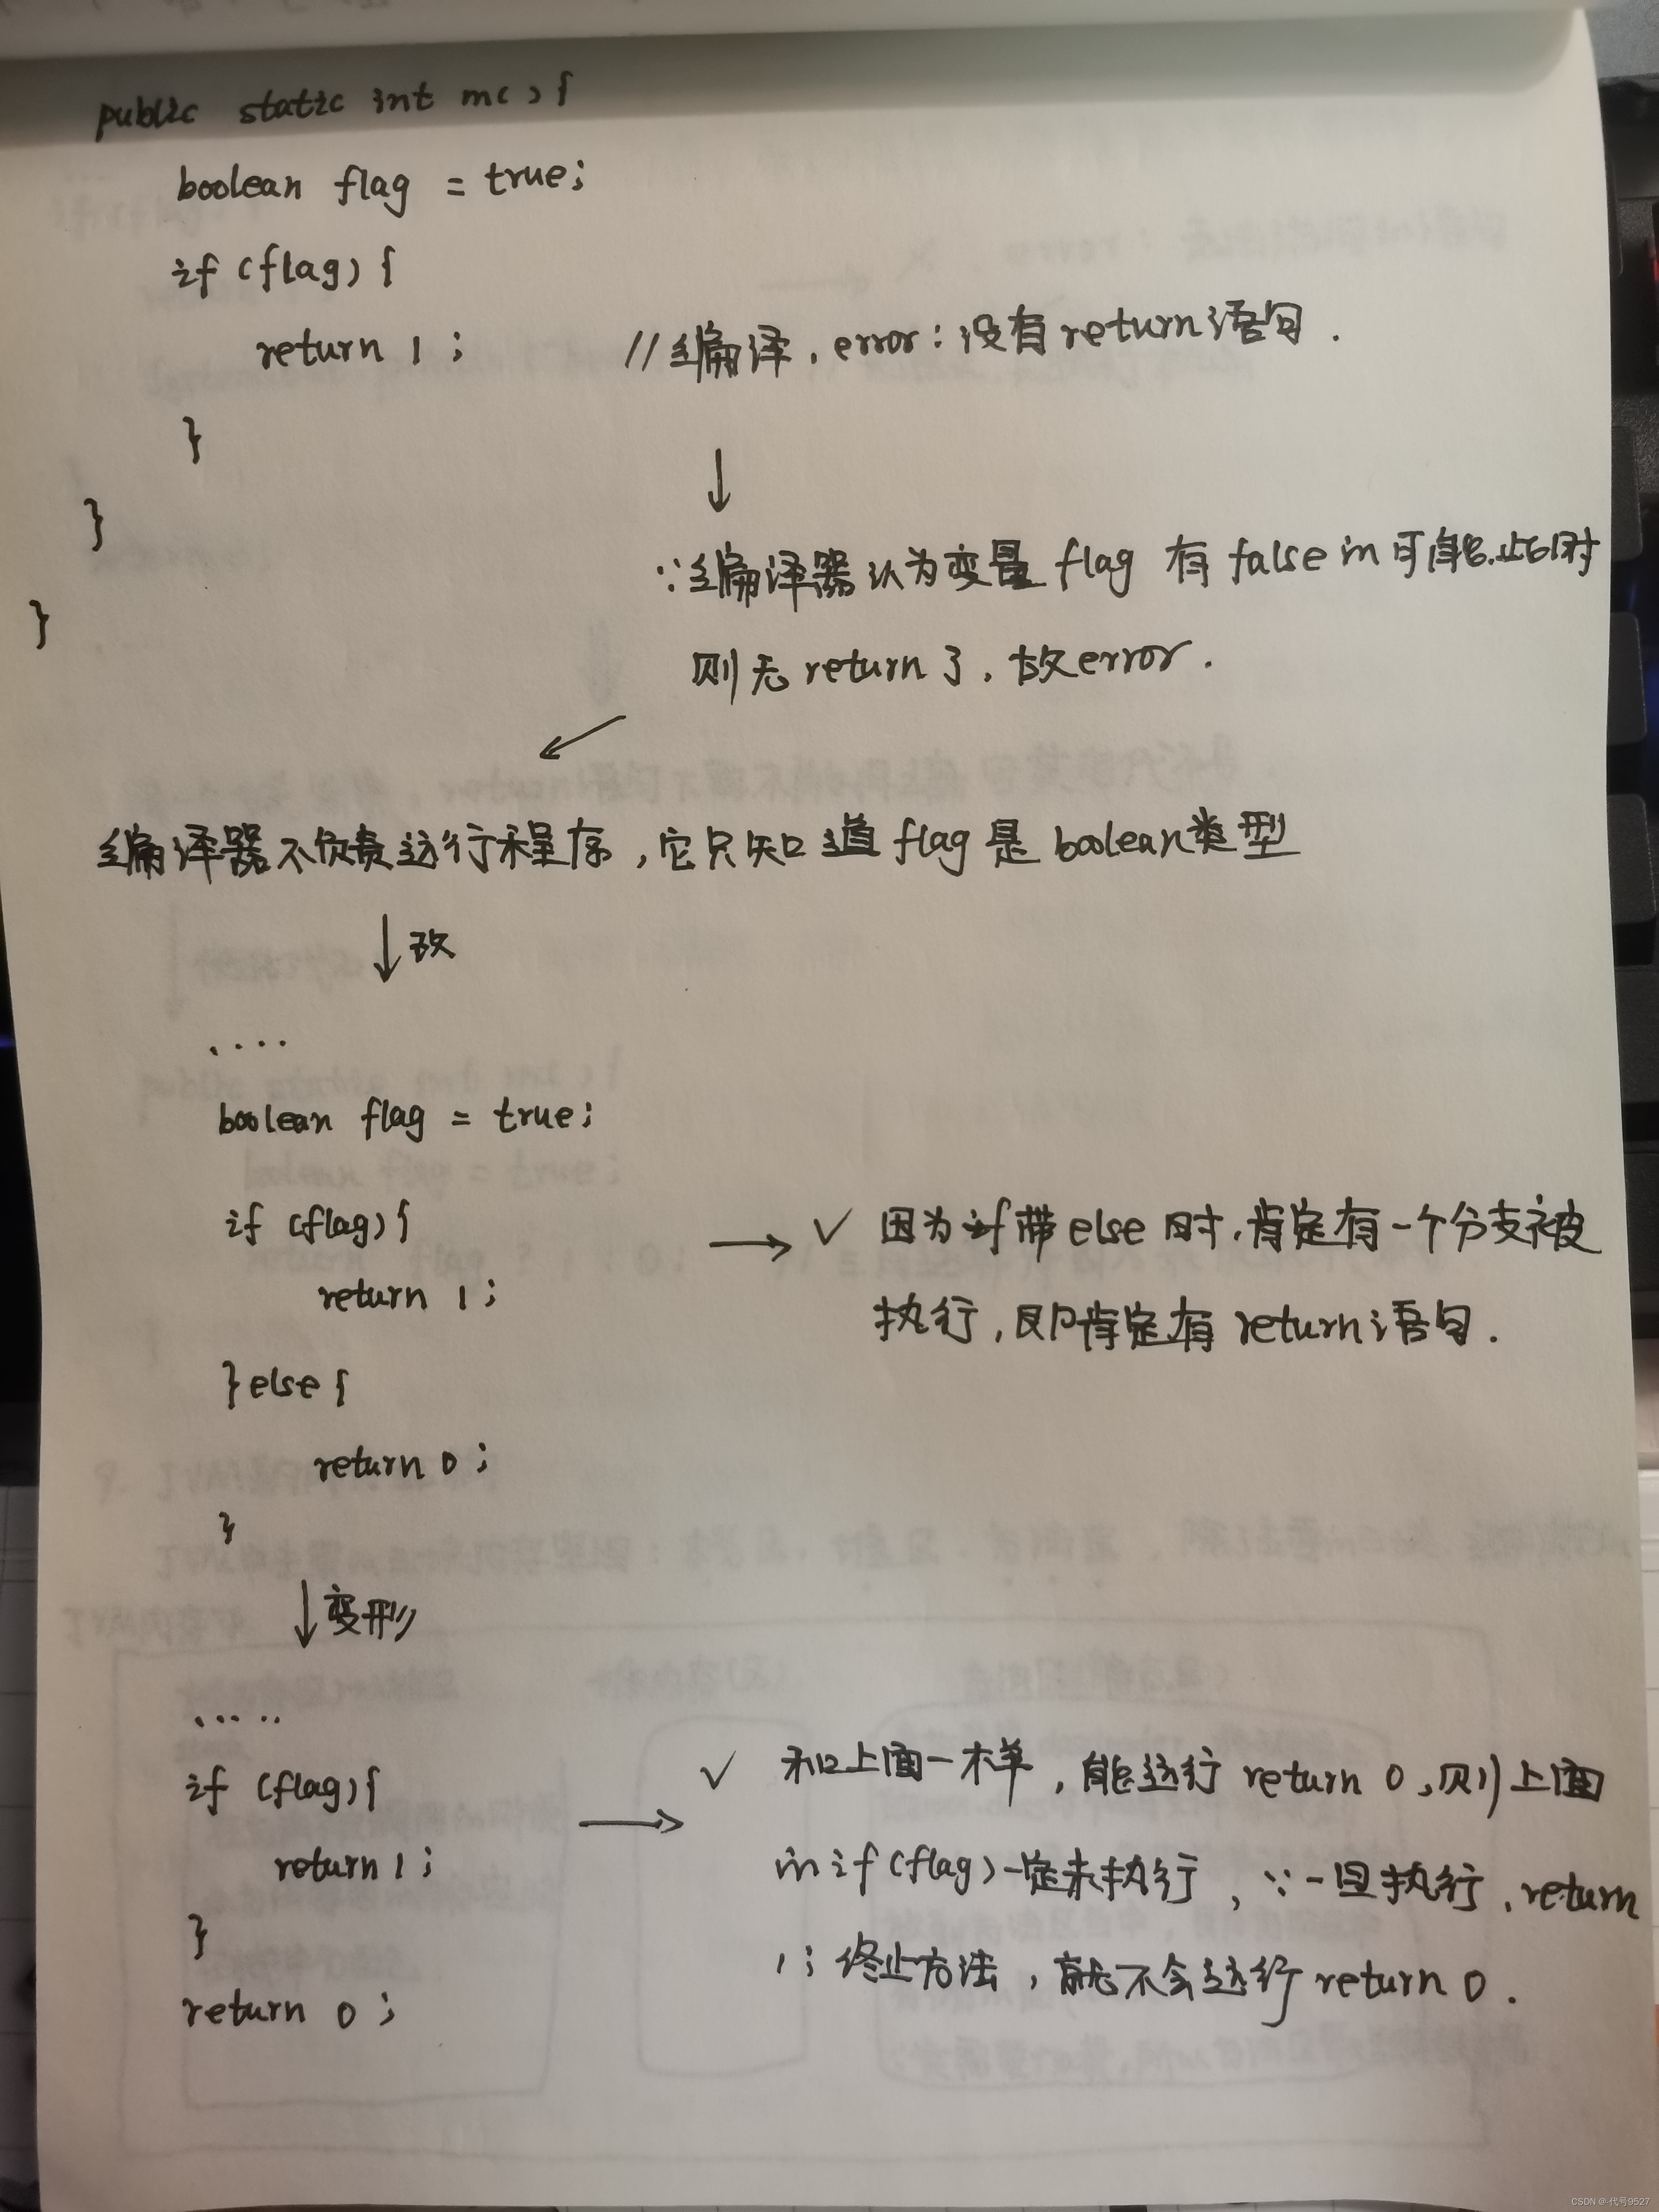 public static int m( ){
boolean flag = true;
if (flag) {
return 1 ; //编译，error：没有return语句．
}
}
}
↓
∵编译器认为变量 flag 有 false 的可能．此时
则无 return 了，故error．
编译器不负责运行程序，它只知道 flag 是 boolean类型
↓改
....
boolean flag = true;
if (flag){
return 1 ;
}else{
return 0 ;
}
→ ✓ 因为 if 带 else 时，肯定有一个分支被
执行，即肯定有 return 语句．
↓变形
.....
if (flag){
return 1 ;
}
return 0 ;
→ ✓ 和上面一样，能运行 return 0，则上面
的 if (flag)一定未执行，∵一旦执行，return
1；终止方法，就不会运行 return 0．
CSDN @-代号9527